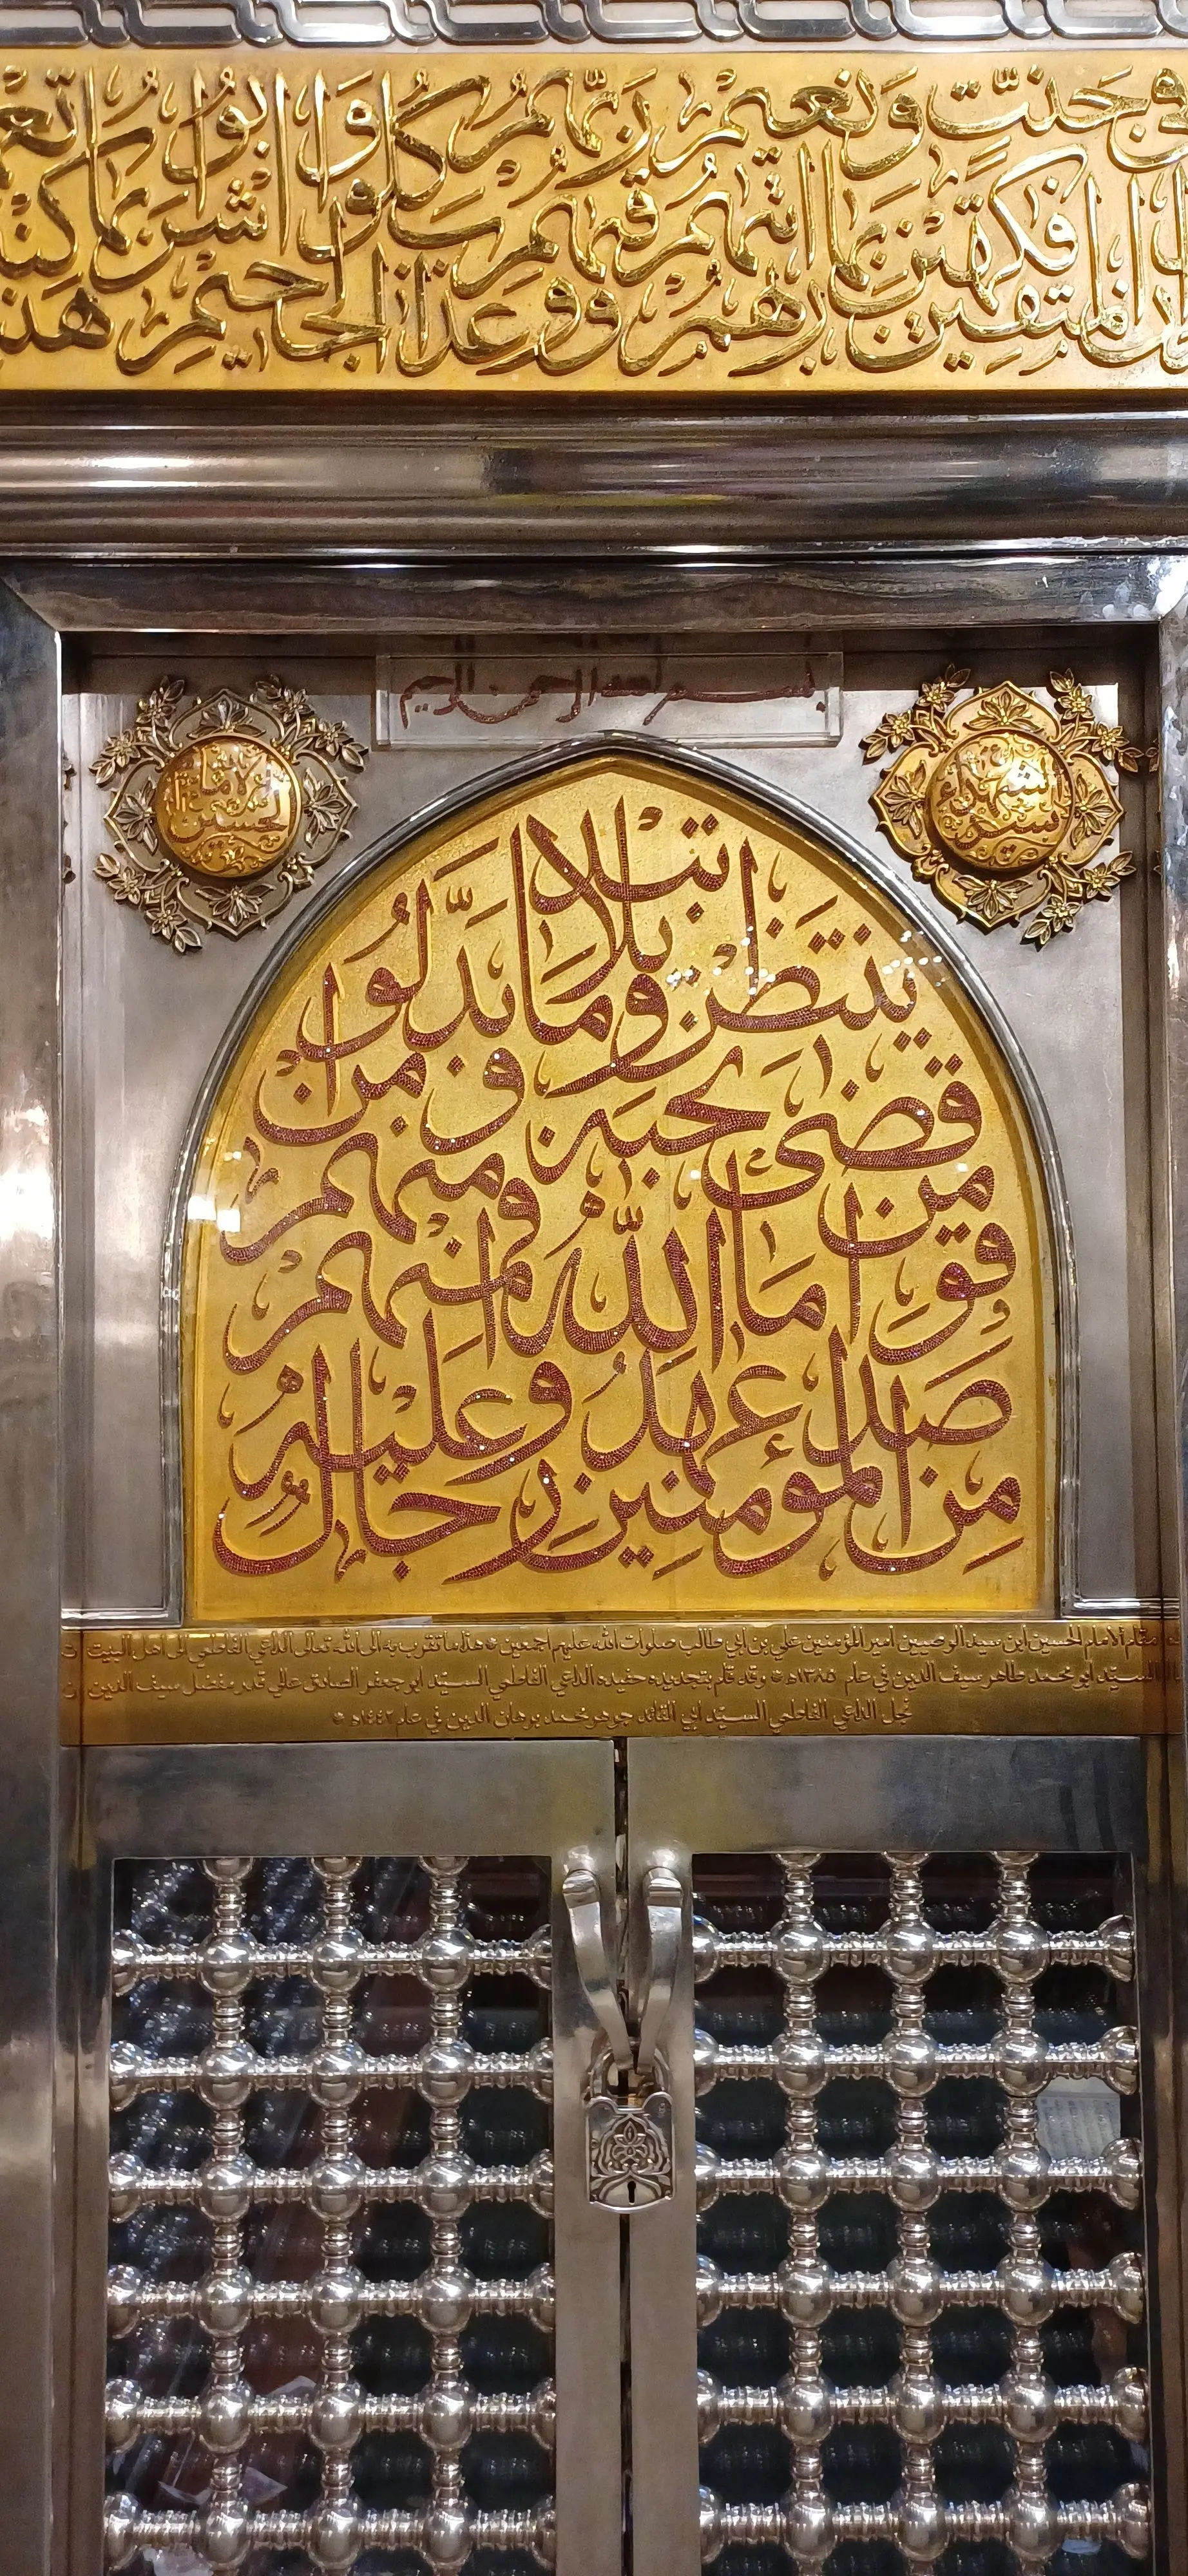 المتقين في جنت ونعيم فكهين بما اتهم ربهم ووقهم ربهم عذاب الجحيم كلوا واشربوا بما
بسم الله الرحمن الرحيم
سيد الشهداء
الامام الحسين
من المؤمنين رجال
صدقوا ما عهدوا الله عليه
فمنهم من قضى نحبه ومنهم
من ينتظر وما بدلوا
تبديلا
مقام الامام الحسين ابن سيد الوصيين امير المؤمنين علي بن ابي طالب صلوات الله عليهم اجمعين هذا ما تقرب به الى الله تعالى الداعي الفاطمي الى اهل البيت
السيد ابو محمد طاهر سيف الدين في عام ١٣٨٥ه وقد قام بتجديده حفيده الداعي الفاطمي السيد ابو جعفر الصادق عالي قدر مفضل سيف الدين
نجل الداعي الفاطمي السيد ابي القائد جوهر محمد برهان الدين في عام ١٤٤٢ه